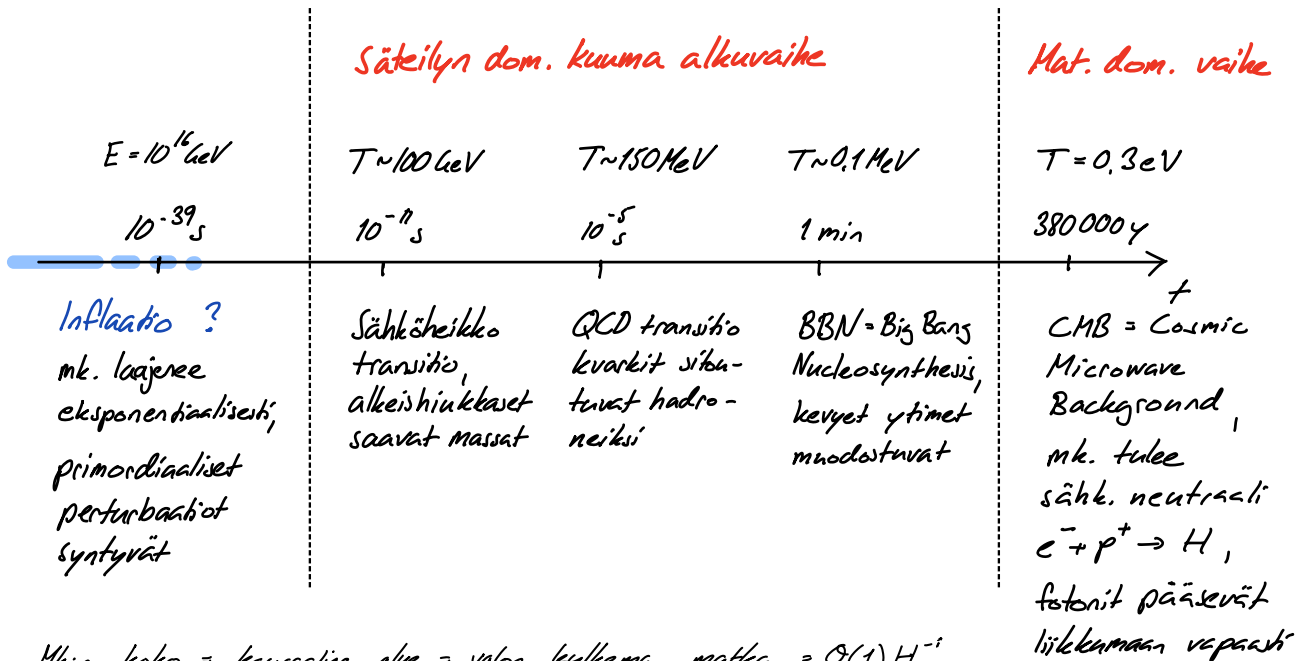 Säteilyn dom. kuuma alkuvaihe
Mat. dom. vaihe
E = 10^16 GeV
T~100 GeV
T~150 MeV
T~0.1 MeV
T = 0.3 eV
10^-39 s
10^-11 s
10^-5 s
1 min
380 000 y
t
Inflaatio ?
mk. laajenee
eksponentiaalisesti,
primordiaaliset
perturbaatiot
syntyvät
Sähköheikko
transitio,
alkeishiukkaset
saavat massat
QCD transitio
kvarkit sitou-
tuvat hadro-
neiksi
BBN = Big Bang
Nucleosynthesis,
kevyet ytimet
muodostuvat
CMB = Cosmic
Microwave
Background,
mk. tulee
sähk. neutraali
e^- + p^+ → H,
fotonit pääsevät
liikkumaan vapaasti
koko = kausaalin alue = valon kulkema matka = O(1) H^-1